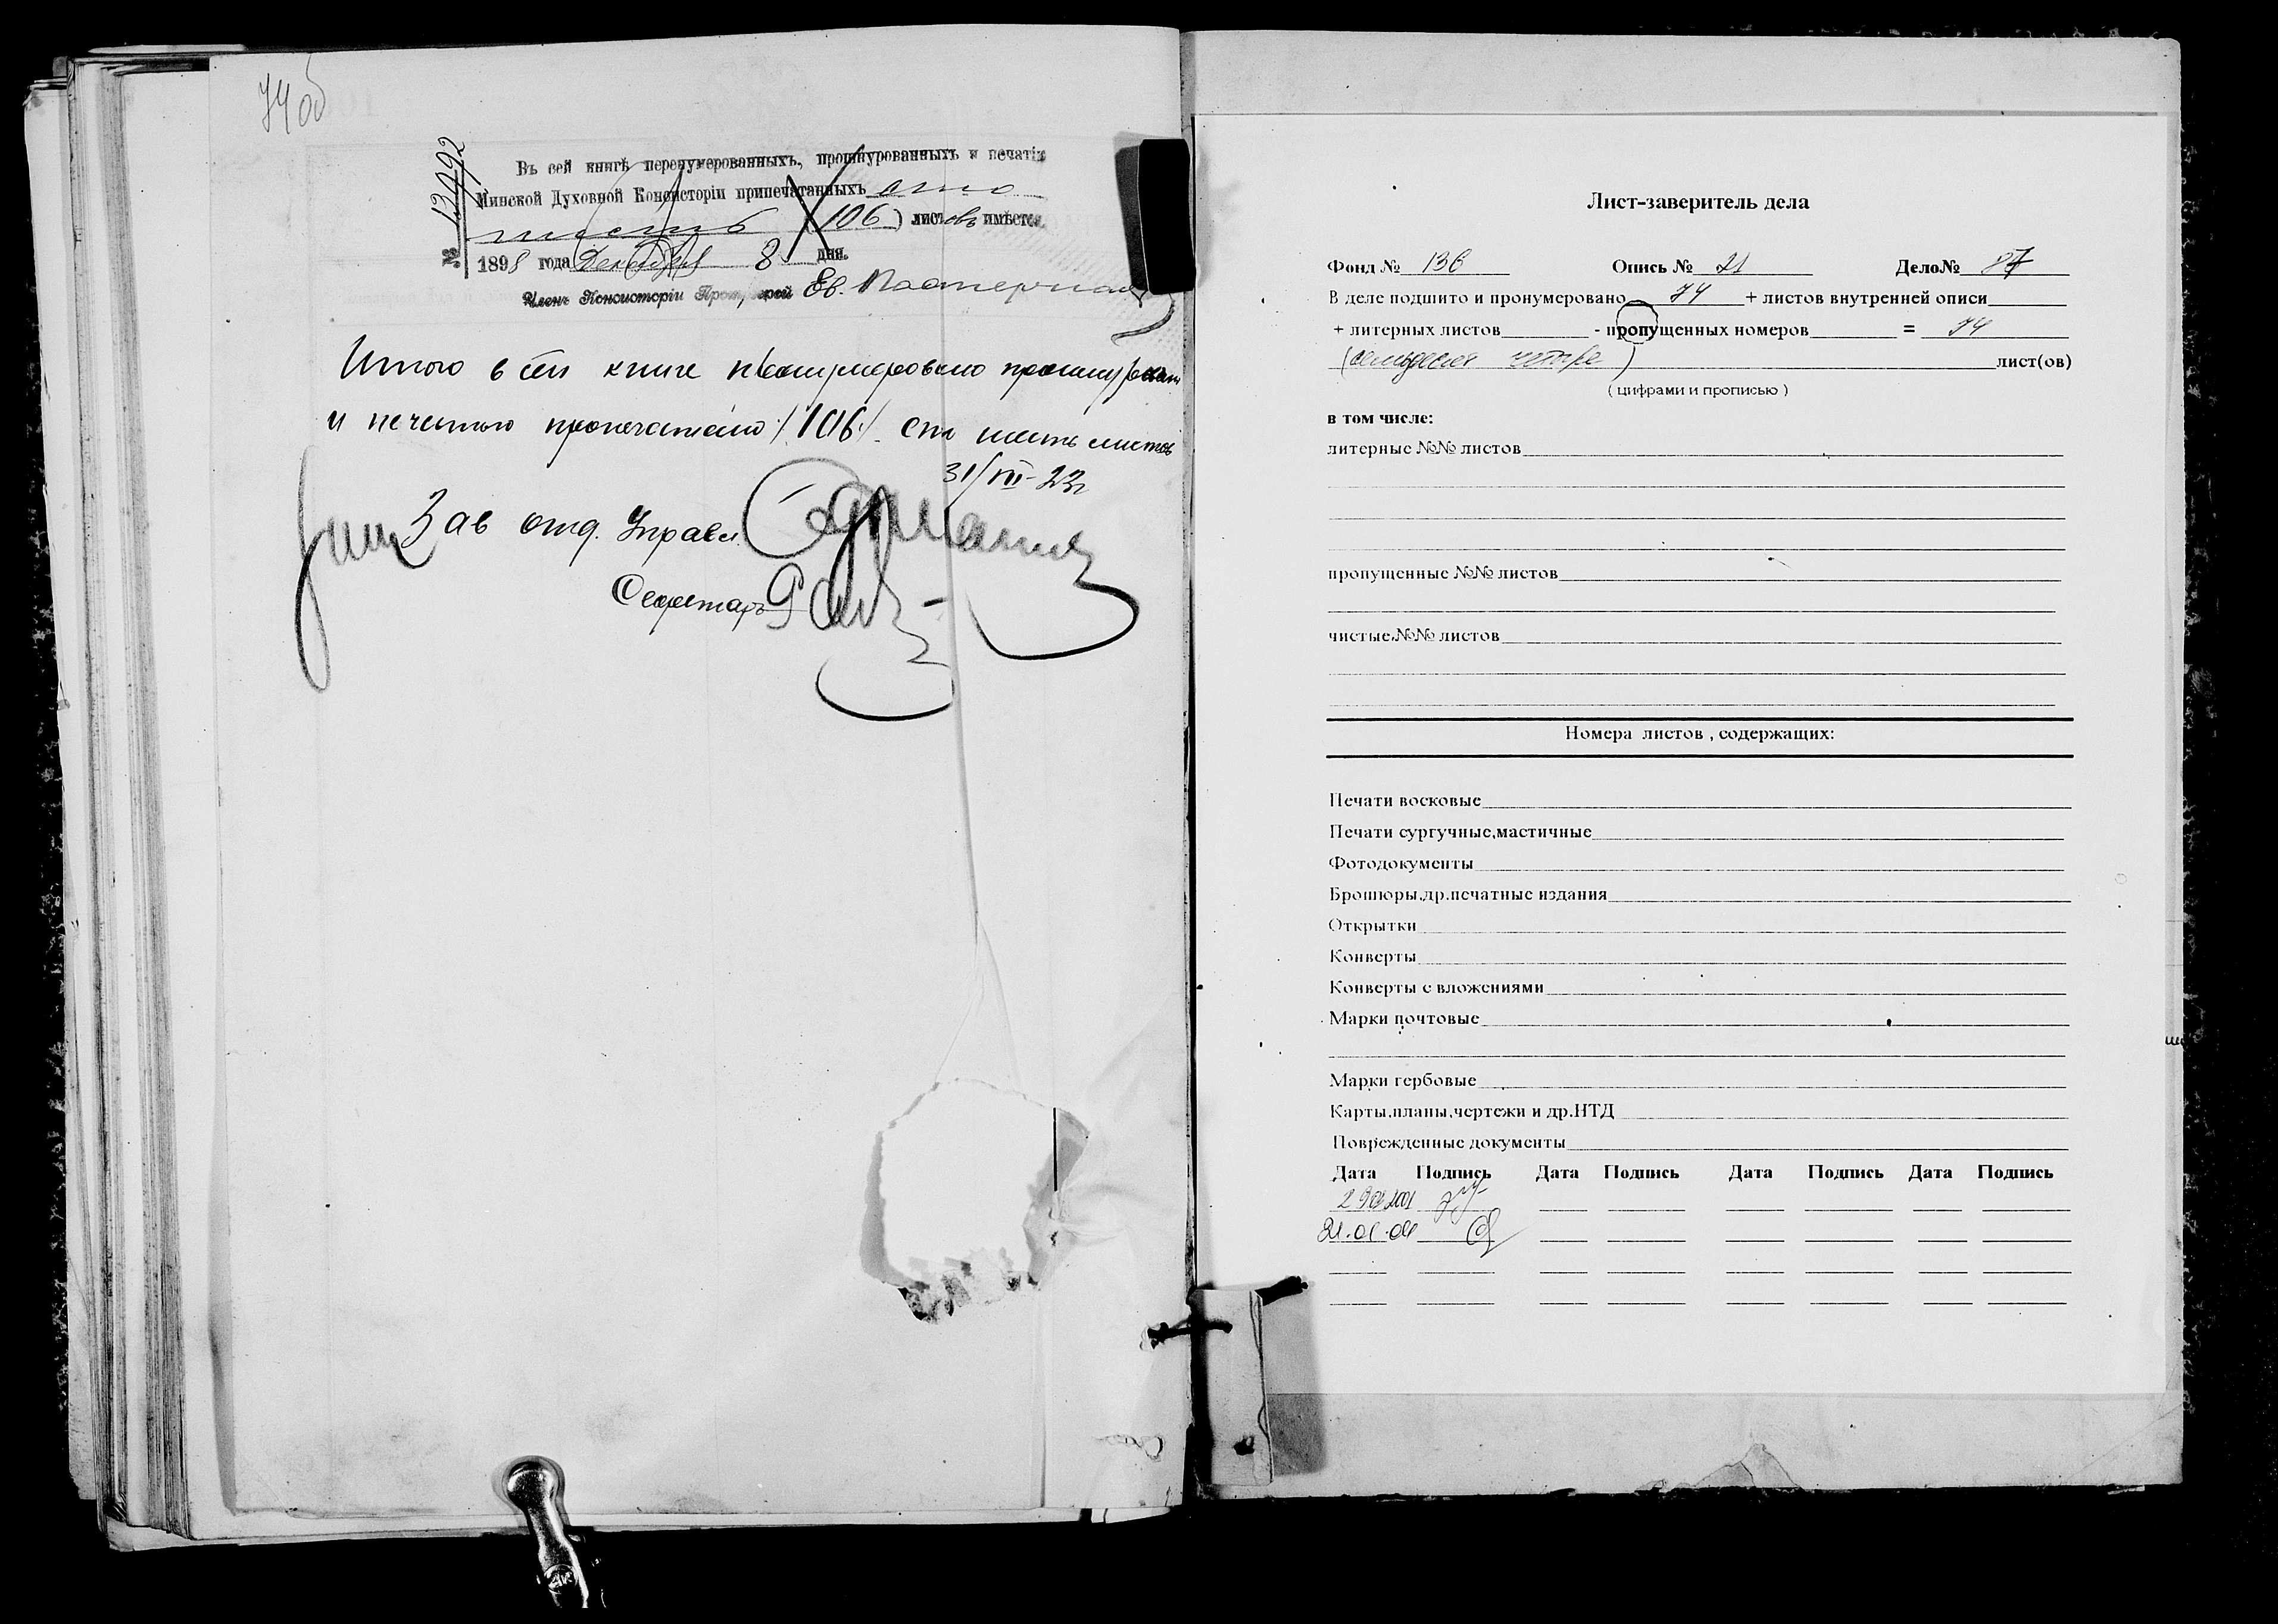 74 об
№ 13992
Въ сей книгѣ перенумерованныхъ, прошнурованныхъ и печатію
Минской Духовной Консисторіи припечатанныхъ сто
шесть (106) листовъ имѣется
1898 года Декабря 8 дня.
Членъ Консисторіи Протоіерей Ев.
Итого в сей книге пронумеровано прошнуровано
и печатью пропечатано /106/ сто шесть листов
31/VII-23г
Зав отд. Управл.
Секретарь
Лист-заверитель дела
Фонд № 136 Опись № 21 Дело№
В деле подшито и пронумеровано 74 + листов внутренней описи
+ литерных листов - пропущенных номеров = 74
(семьдесят четыре) лист(ов)
( цифрами и прописью )
в том числе:
литерные №№ листов
пропущенные №№ листов
чистые №№ листов
Номера листов , содержащих:
Печати восковые
Печати сургучные,мастичные
Фотодокументы
Брошюры,др.печатные издания
Открытки
Конверты
Конверты с вложениями
Марки почтовые
Марки гербовые
Карты,планы,чертежи и др.НТД
Поврежденные документы
Дата Подпись Дата Подпись Дата Подпись Дата Подпись